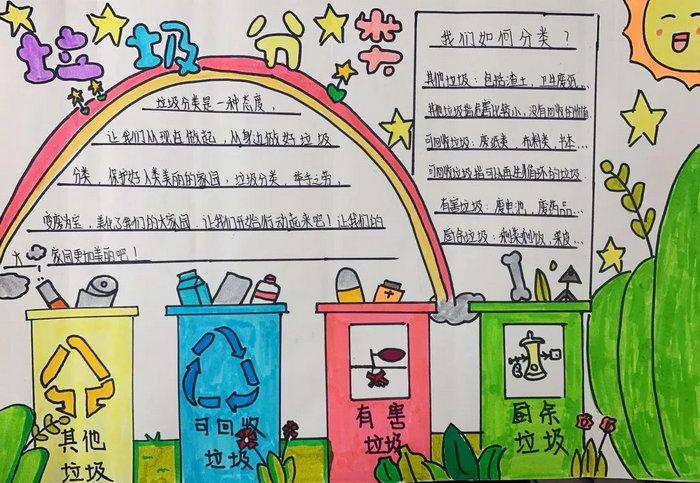 垃圾分类
垃圾分类是一种态度，
让我们从现在做起，从身边做好垃圾
分类，保护好人类美丽的家园，垃圾分类，举手之劳，
变废为宝，美化了我们的大家园，让我们开始行动起来吧！让我们的
大家园更加美丽吧！
我们如何分类？
其他垃圾：包括渣土，卫生废纸...
其他垃圾指危害比较小，没有回收的价值
可回收垃圾：废纸类，布料类，书本...
可回收垃圾指可以再生循环的垃圾
有害垃圾：废电池，废药品...
厨余垃圾：剩菜剩饭，果皮...
其他
垃圾
可回收
垃圾
有害
垃圾
厨余
垃圾